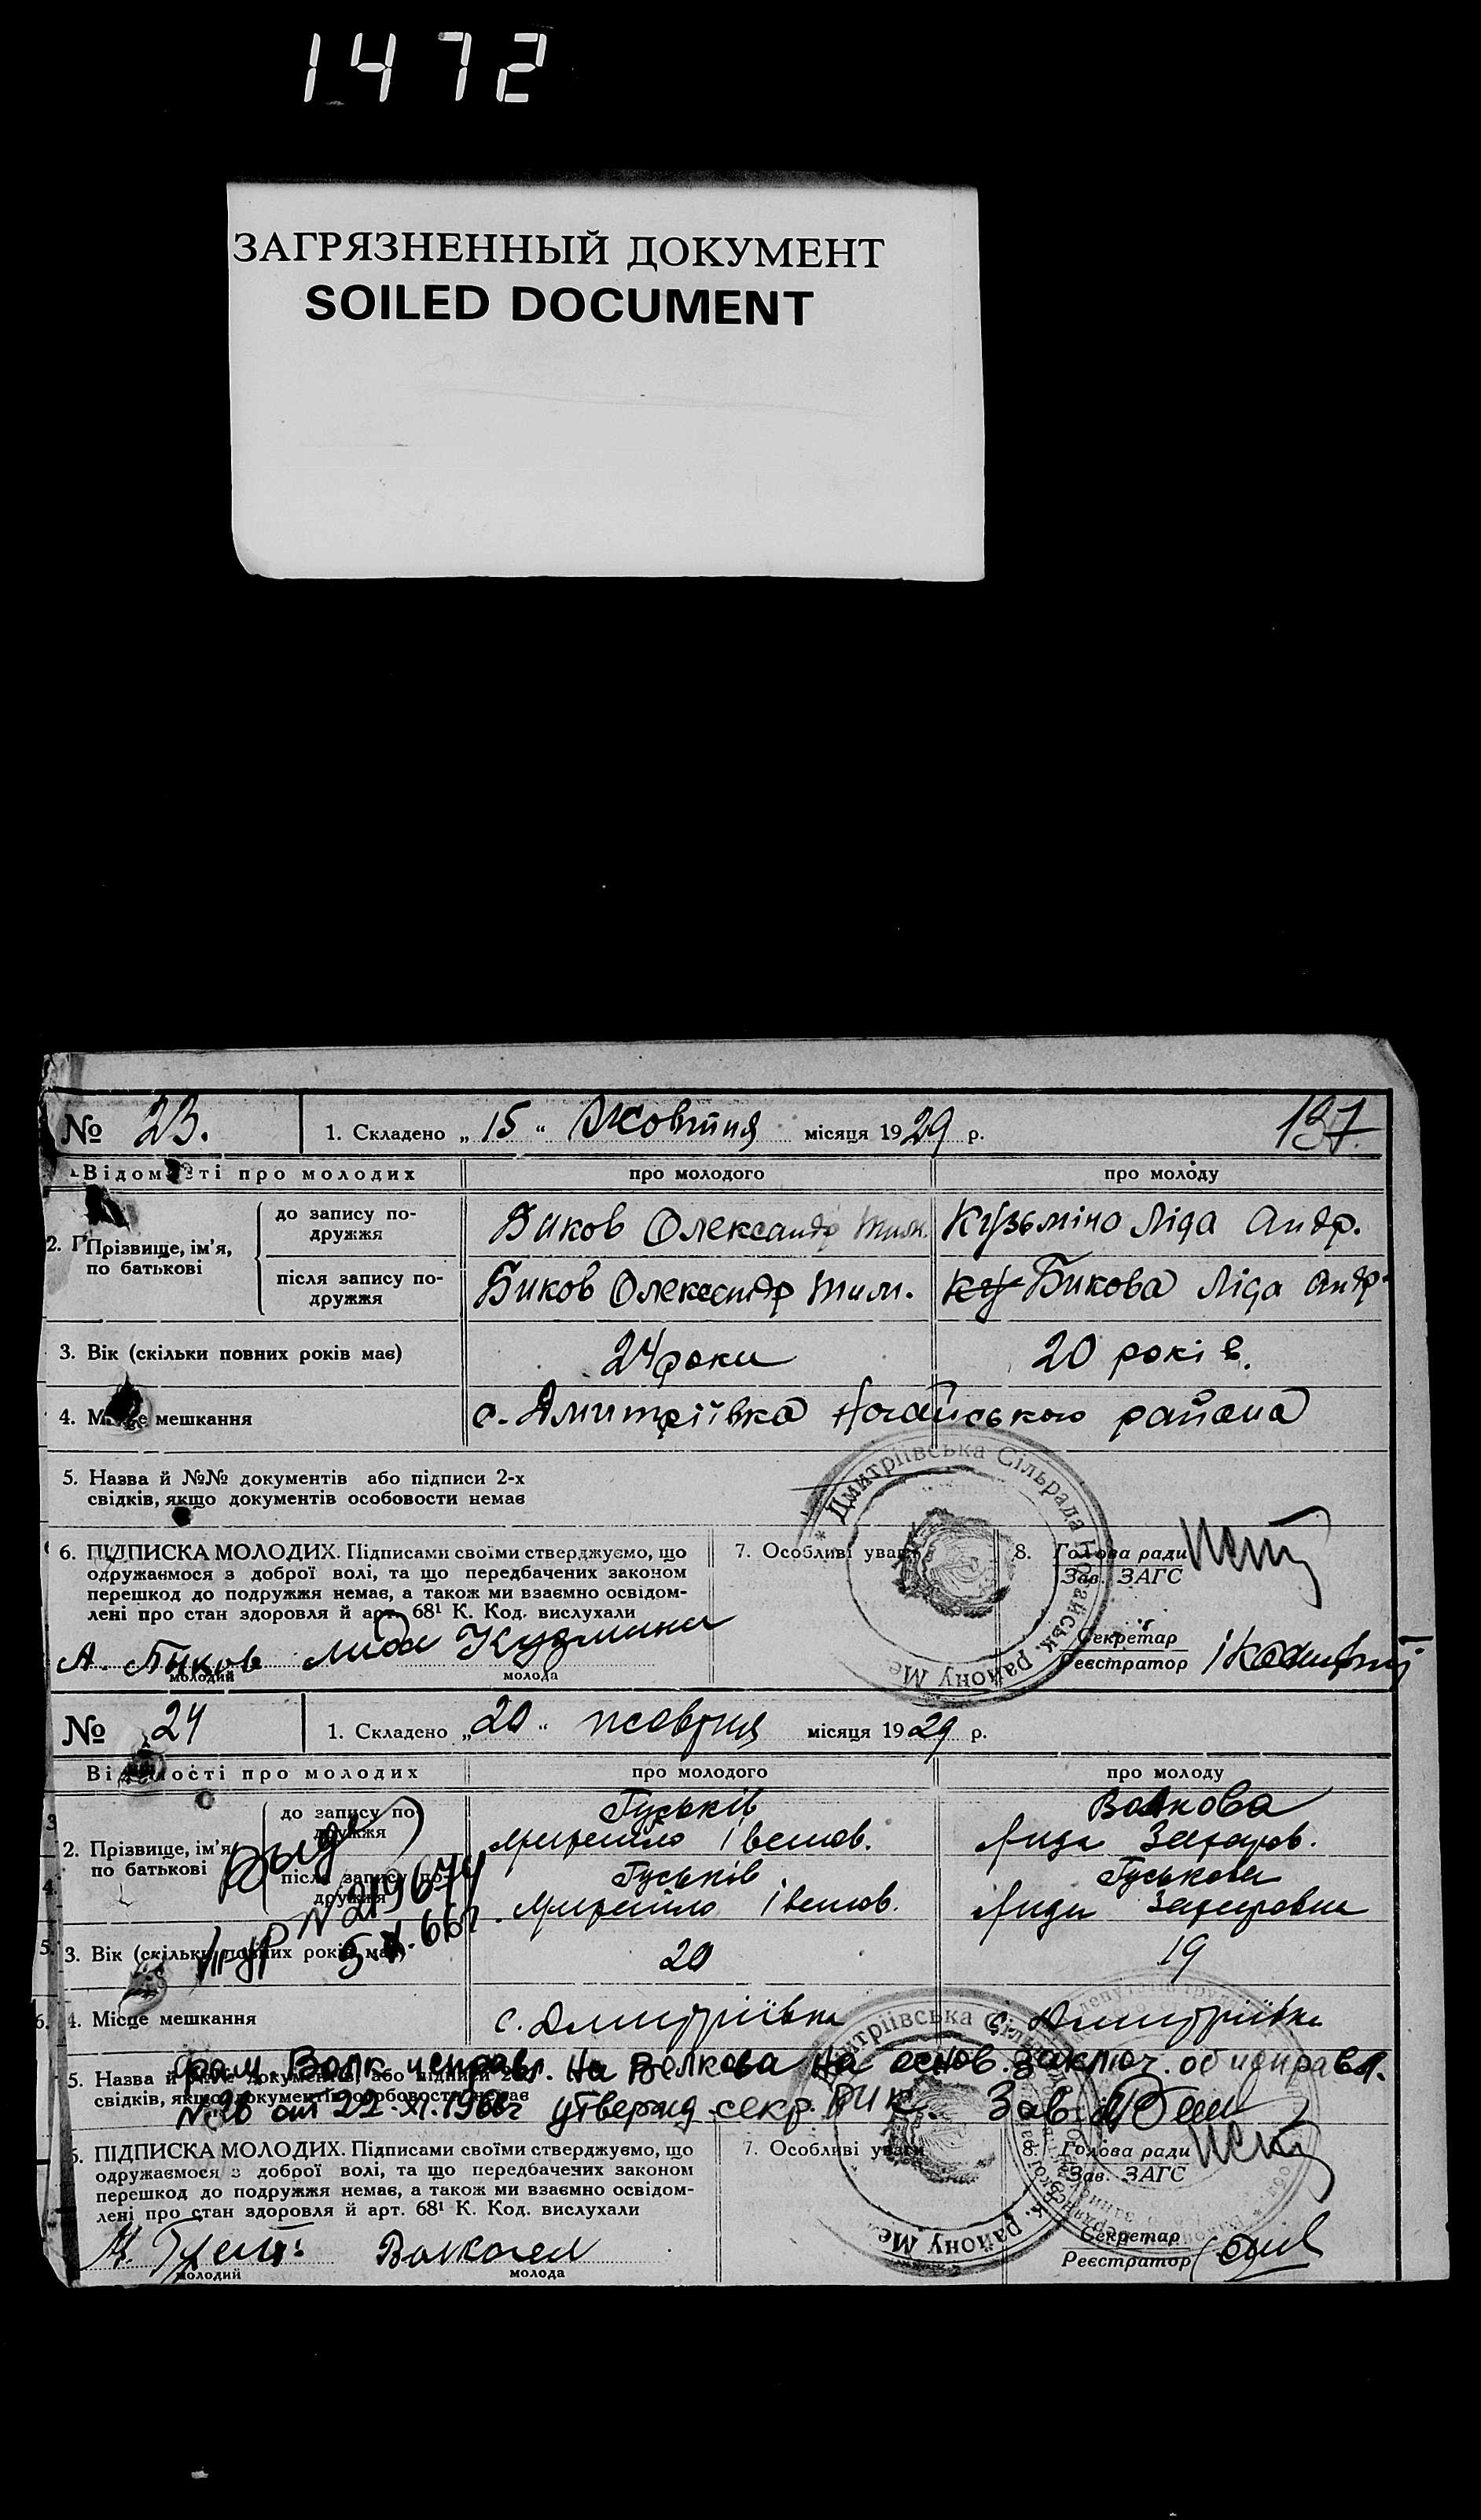 1472
ЗАГРЯЗНЕННЫЙ ДОКУМЕНТ
SOILED DOCUMENT
№ 23. 1. Складено „ 15 “ Жовтня місяця 1929 р. 197
Відомості про молодих про молодого про молоду
2. Прізвище, ім'я, по батькові
до запису по-дружжя Биков Олександр Тим. Кузьміно Ліда Андр.
після запису по-дружжя Биков Олександр Тим. Ку Бикова Ліда Андр.
3. Вік (скільки повних років має) 24 роки 20 років.
4. Місце мешкання с. Дмитріївка Ногайського района
5. Назва й №№ документів або підписи 2-х
свідків, якщо документів особовости немає
6. ПІДПИСКА МОЛОДИХ. Підписами своїми стверджуємо, що
одружаємося з доброї волі, та що передбачених законом
перешкод до подружжя немає, а також ми взаємно освідом-
лені про стан здоровля й арт. 68¹ К. Код. вислухали
А. Быков Лида Кузмина
молодий молода
7. Особливі уваги
8. Голова ради
Зав. ЗАГС
Секретар
Реєстратор
* Дмитріївська Сільрада Ногайськ. району Ме
№ 24 1. Складено „ 20 “ жовтня місяця 1929 р.
Відомості про молодих про молодого про молоду
2. Прізвище, ім'я, по батькові
до запису по-дружжя Гуськів Волкова
Михайло Іванов. Лида Захаров.
після запису по-дружжя Гуськів Гуськова
Михайло Іванов. Лида Захаровна
№ 219674
3. Вік (скільки повних років має) 20 19
4. Місце мешкання с. Дмитріївка с. Дмитріївка
фам. Волк исправл. на Волкова на основ. заключ. об исправл.
№ 26 от 22.XI.1966г утвержд. секр. РИК. Зав.
5. Назва й №№ документів або підписи 2-х
свідків, якщо документів особовости немає
6. ПІДПИСКА МОЛОДИХ. Підписами своїми стверджуємо, що
одружаємося з доброї волі, та що передбачених законом
перешкод до подружжя немає, а також ми взаємно освідом-
лені про стан здоровля й арт. 68¹ К. Код. вислухали
молодий молода
7. Особливі уваги
8. Голова ради
Зав. ЗАГС
Секретар
Реєстратор